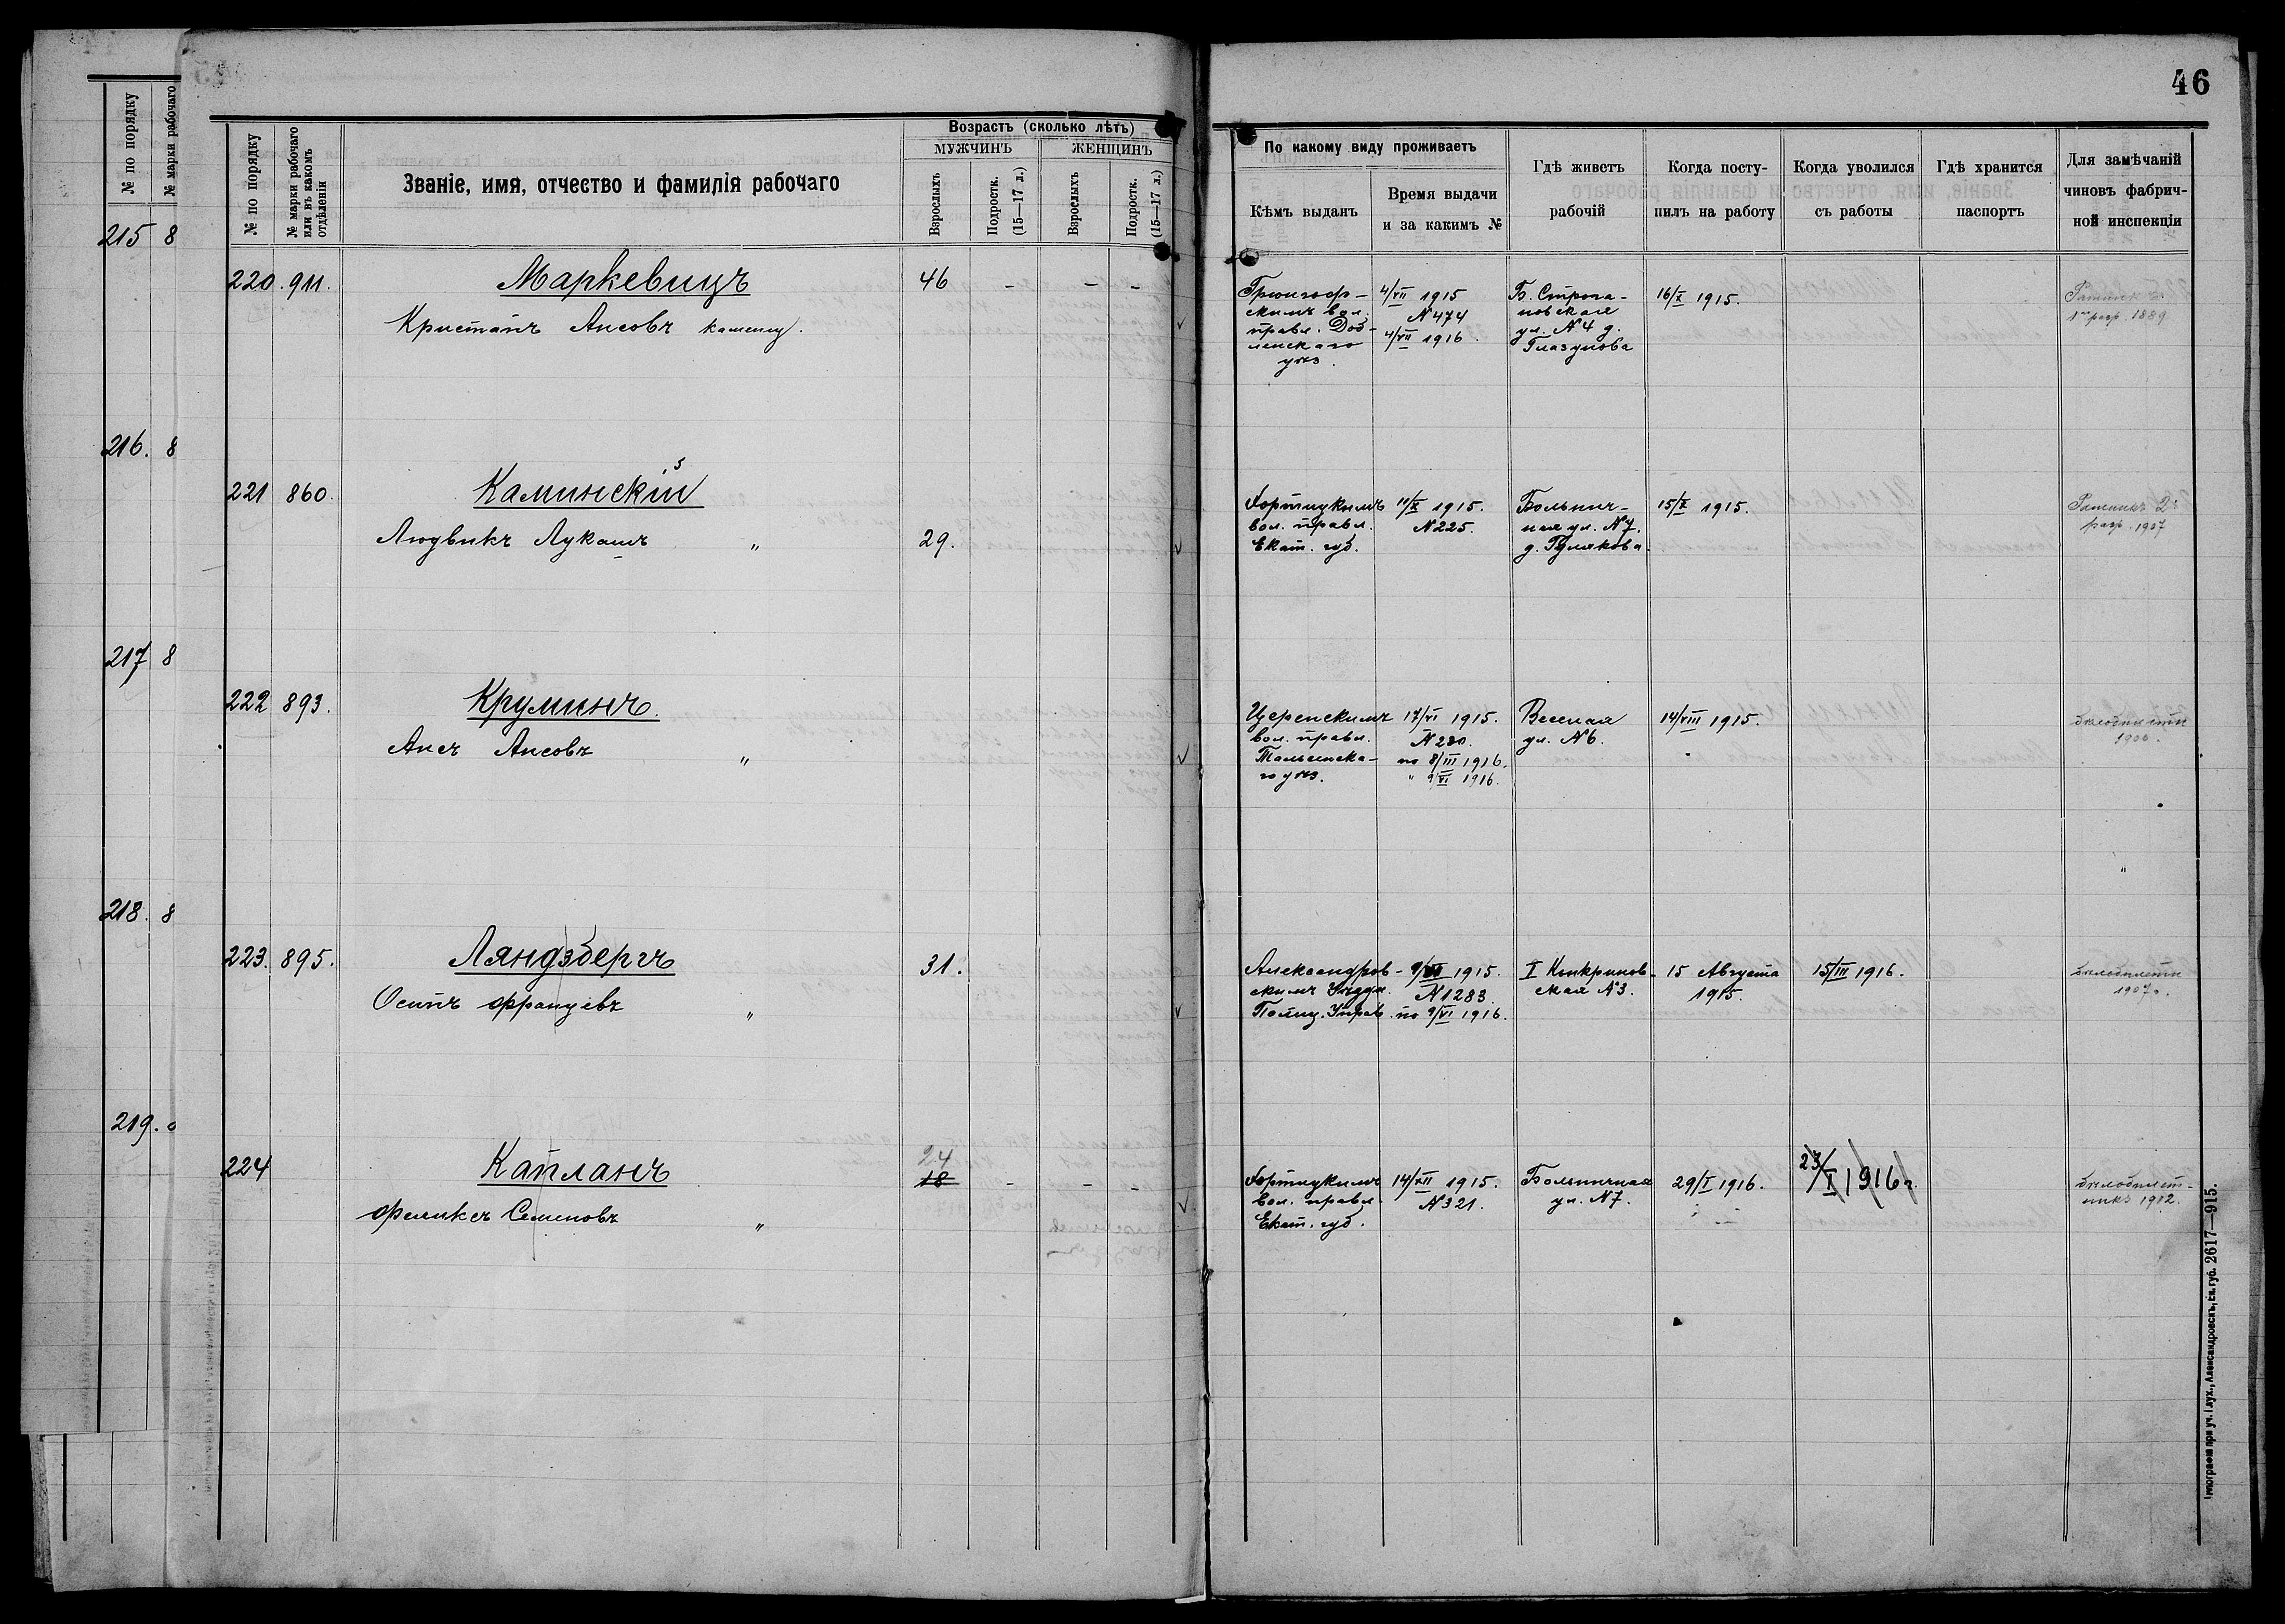 46
№ по порядку
№ марки рабочаго
215 8
216. 8
217 8
218. 8
219.
№ по порядку
№ марки рабочаго или въ какомъ отдѣленіи
Званіе, имя, отчество и фамилія рабочаго
Возрастъ (сколько лѣтъ)
МУЖЧИНЪ
ЖЕНЩИНЪ
Взрослыхъ
Подростк. (15—17 л.)
Взрослыхъ
Подростк. (15—17 л.)
По какому виду проживаетъ
Кѣмъ выданъ
Время выдачи
и за какимъ №
Гдѣ живетъ
рабочій
Когда посту-
пилъ на работу
Когда уволился
съ работы
Гдѣ хранится
паспортъ
Для замѣчаній
чиновъ фабрич-
ной инспекціи
220. 911. Маркевицъ 46 - - -
Кристапъ Ансовъ
Грюнгоф-
скимъ вол.
правл. Доб-
ленскаго
уѣз.
4/VII 1915
N 474
4/VII 1916
Б. Строга-
новская
ул. N 4 д.
Глазунова
16/X 1915.
Ратник
1 разр. 1889
221 860. Каминскій
Людвикъ Лукашъ " 29.
Хортицкимъ
вол. правл.
Екат. губ.
11/X 1915.
N 225.
Больнич-
ная ул. N 7.
д. Гулякова.
15/X 1915.
Ратникъ 2
разр. 1907
222 893. Круминъ
Ансъ Ансовъ "
Церенскимъ
вол. правл.
Тальсенска-
го уѣз.
17/VI 1915.
N 280.
по 8/III 1916.
" 9/VI 1916.
Весел­ая
ул. N 6.
14/VIII 1915.
223. 895. Ляндзбергъ 31.
Осипъ Францевъ "
Александров-
скимъ Уѣздн.
Полиц. Управ.
9/VI 1915.
N 1283.
по 9/VI 1916.
I Канкринов-
ская N 3.
15 Августа
1915.
15/III 1916.
Бѣлобилетн
1907.
224 Капланъ 24
18 - - -
Феликсъ Семеновъ "
Хортицкимъ
вол. правл.
Екат. губ.
14/XII 1915.
N 321.
Больничная
ул. N 7.
29/I 1916.
23/I 1916 г.
Бѣлобилет-
никъ 1912.
Типография при уч. Глух., Александровскъ, Ек. губ. 2617—915.